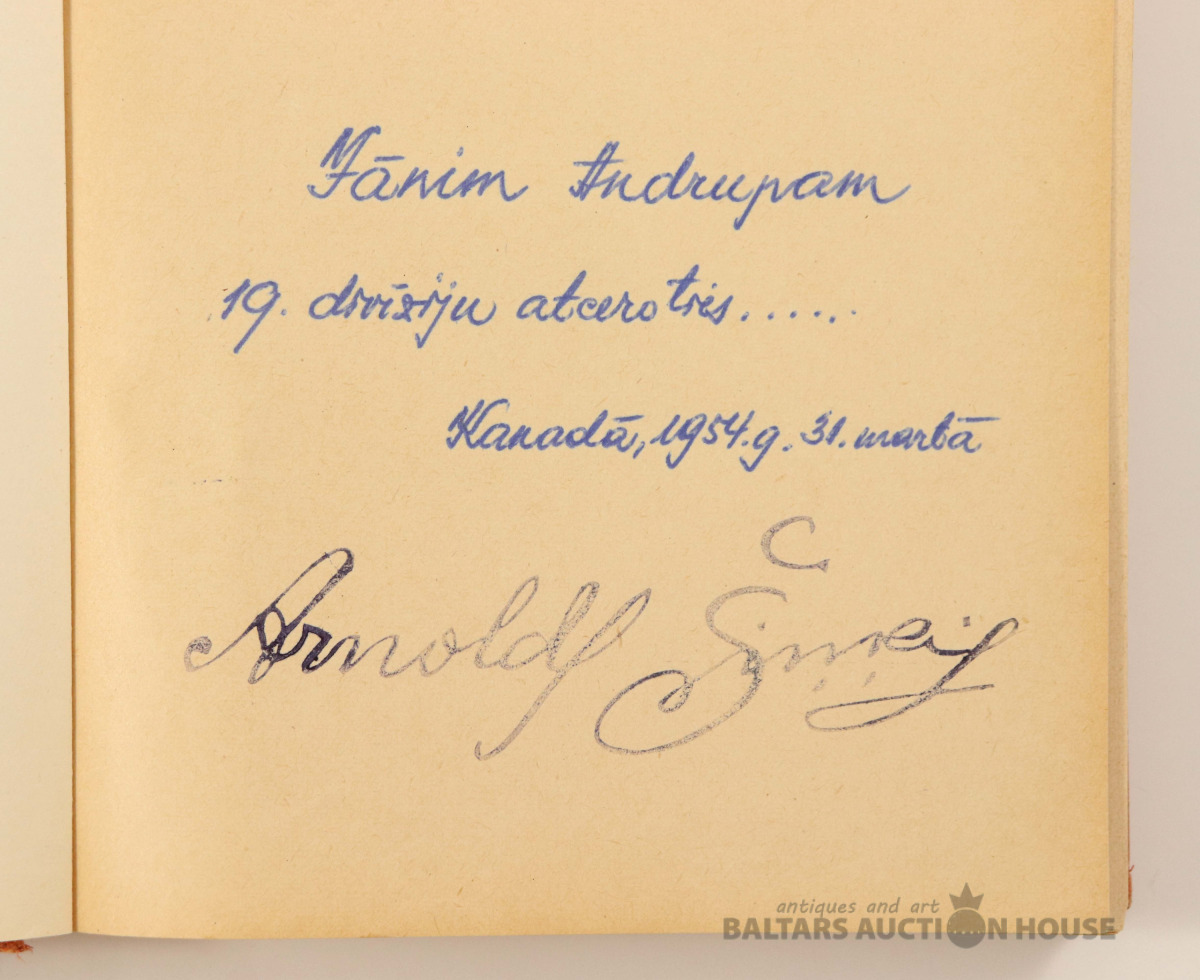 Jānim Andrupam
19. divīziju atceroties......
Kanadā, 1954.g. 31. martā
Arnolds Šiņķis
antiques and art
BALTARS AUCTION HOUSE